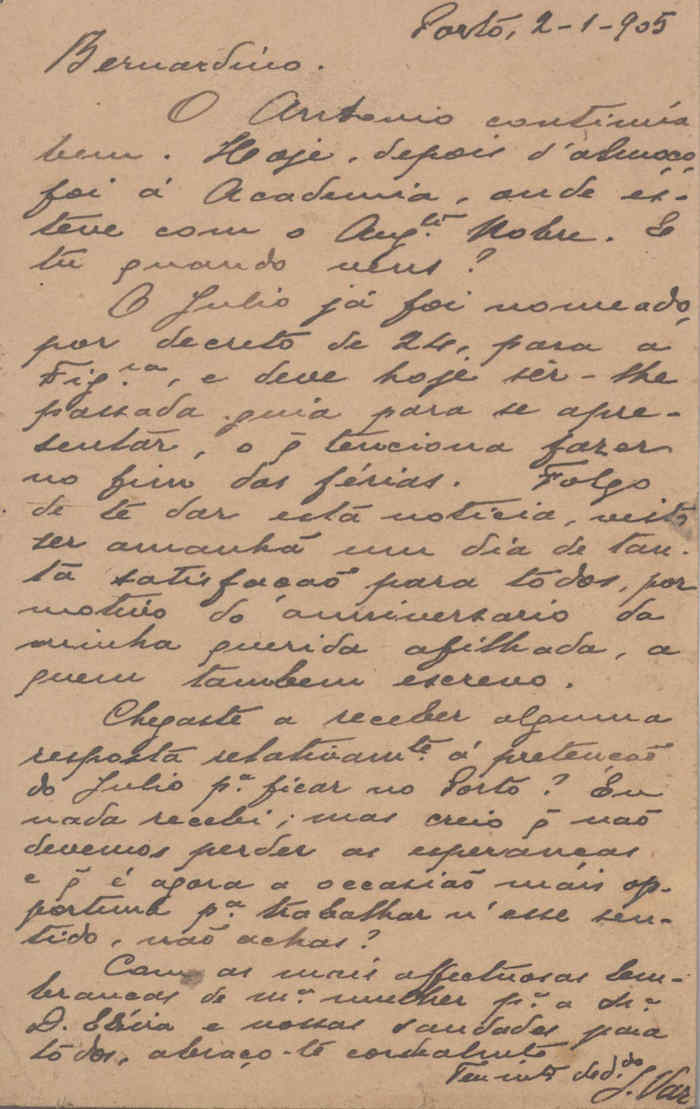 Porto, 2-1-905
Bernardino.
O Antonio continúa
bem. Hoje, depois d'almoço,
foi á Academia, onde es-
teve com o Aug.to Nobre. E
tu quando vens?
O Julio já foi nomeado,
por decreto de 24, para a
Fig.ra, e deve hoje sêr-lhe
passada guia para se apre-
sentar, o q̃ tenciona fazer
no fim das férias. Folgo
de te dar esta notícia, visto
ser amanhã um dia de tan-
ta satisfação para todos, por
motivo do anniversario da
minha querida afilhada, a
quem tambem escrevo.
Chegaste a receber alguma
resposta relativam.te á pretenção
do Julio p.a ficar no Porto? Eu
nada recebi; mas creio q̃ não
devemos perder as esperanças
e q̃ é agora a occasião mais op-
portuna p.a trabalhar n'esse sen-
tido, não achas?
Com as mais affectuosas lem-
branças de m.a mulher p.a a Sr.a
D. Elzira e nossas saudades para
todos, abraço-te cordealmte
Teu mto ded.do
J. Vaz